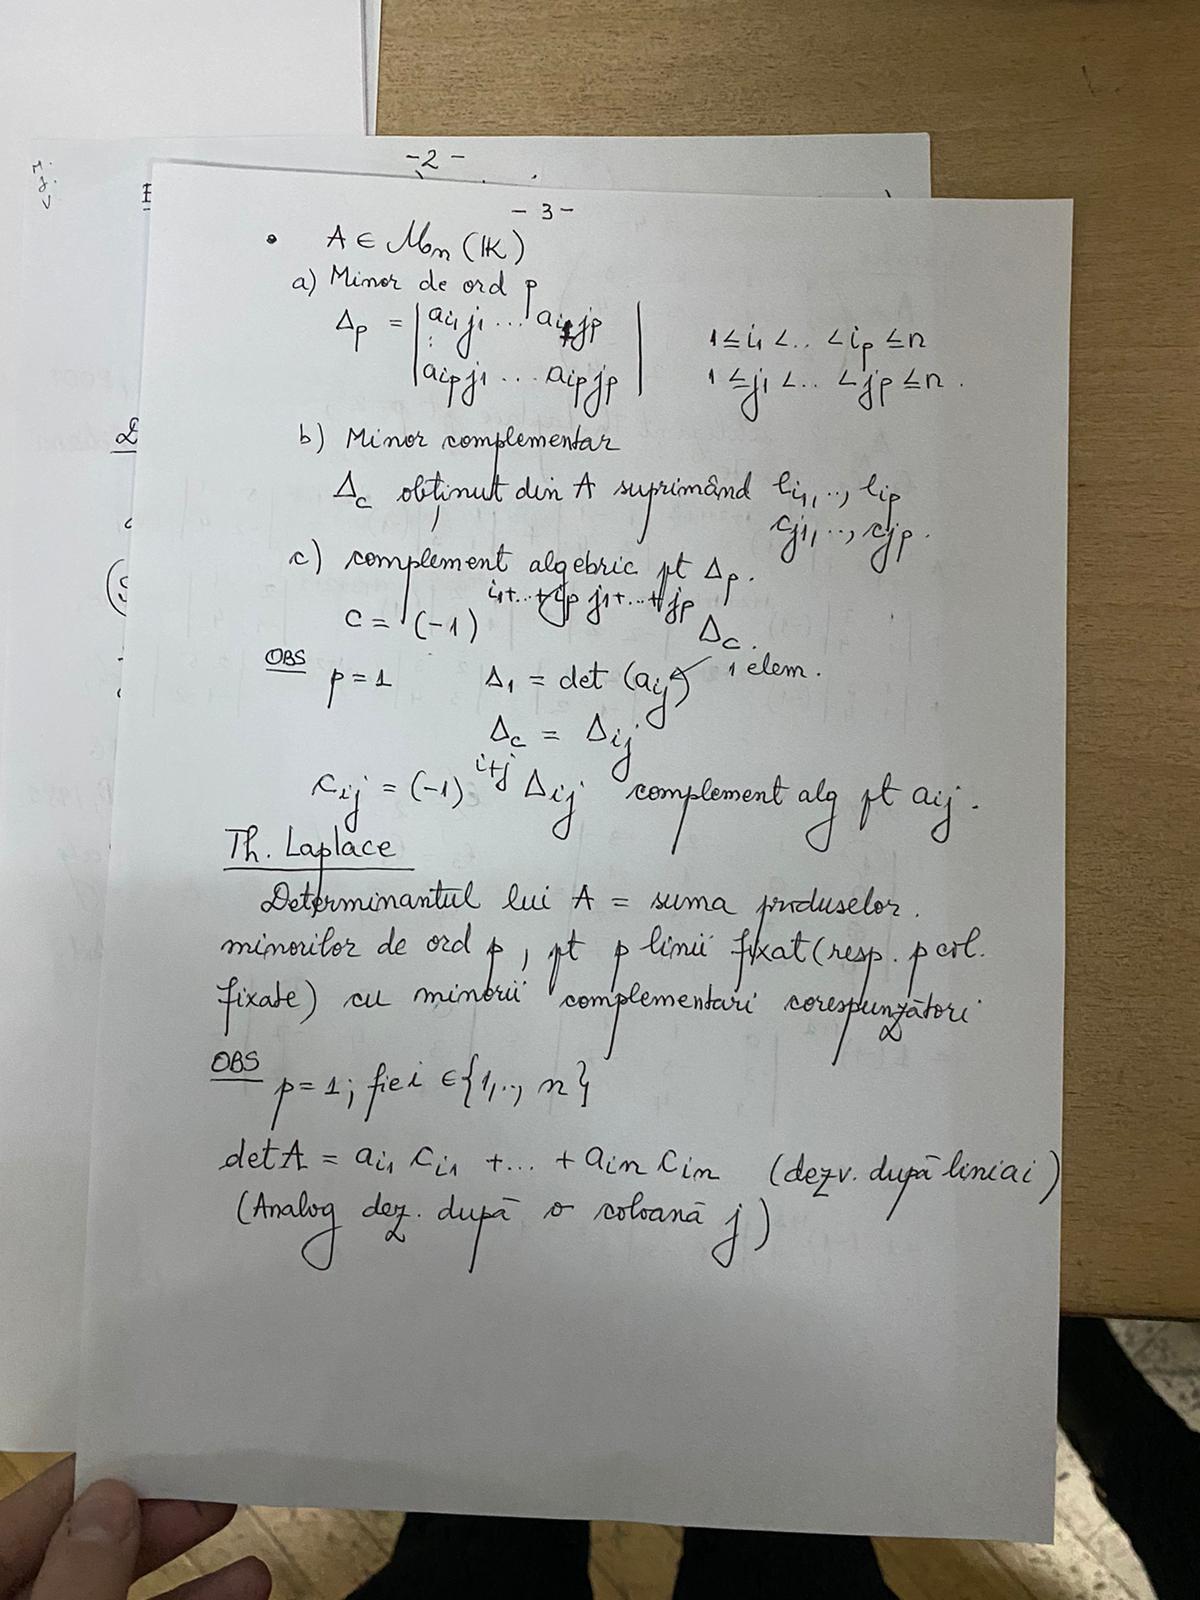 -2-
-3-
• A ∈ Mn (IK)
a) Minor de ord p
Δp = | ai1j1 ... ai1jp |    1 ≤ i1 < .. < ip ≤ n
⋮
| aipj1 ... aipjp |    1 ≤ j1 < .. < jp ≤ n .
b) Minor complementar
Δc obținut din A suprimând li1, .., lip
cj1, .., cjp.
c) complement algebric pt Δp.
c = (-1)^{i1+...+ip+j1+...+jp} Δc.
OBS p = 1    Δ1 = det (aij) 1 elem.
Δc = Δij
cij = (-1)^{i+j} Δij complement alg pt aij.
Th. Laplace
Determinantul lui A = suma produselor.
minorilor de ord p, pt p linii fixat (resp. p col.
fixate) cu minorii complementari corespunzători
OBS p = 1; fie i ∈ {1, .., n}
det A = ai1 ci1 + ... + ain cin (dezv. după linia i)
(Analog dez. după o coloană j)